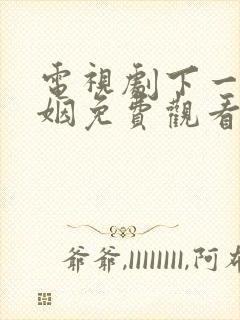 電視劇下一
姻免費觀看
爺爺,llllllll,阿布